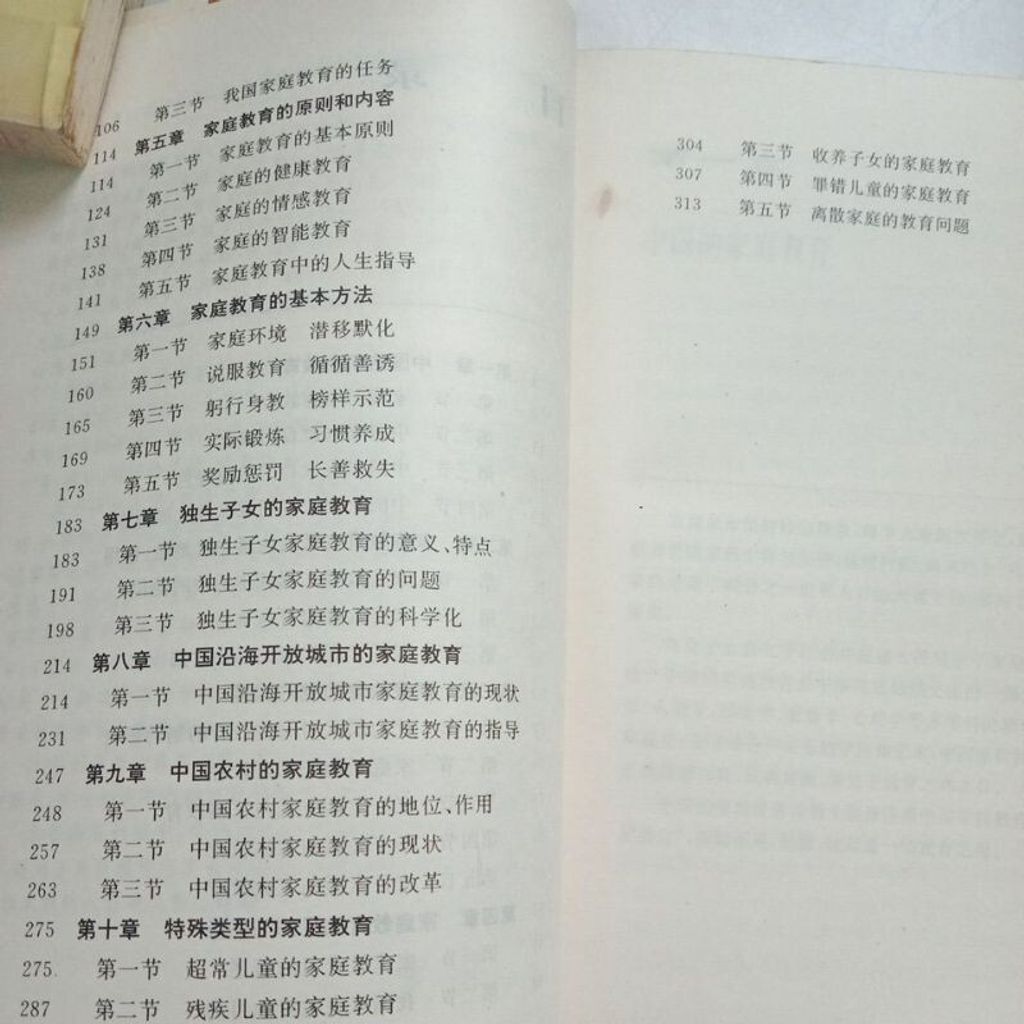 106 第三节 我国家庭教育的任务
114 第五章 家庭教育的原则和内容
114 第一节 家庭教育的基本原则
124 第二节 家庭的健康教育
131 第三节 家庭的情感教育
138 第四节 家庭的智能教育
141 第五节 家庭教育中的人生指导
149 第六章 家庭教育的基本方法
151 第一节 家庭环境 潜移默化
160 第二节 说服教育 循循善诱
165 第三节 躬行身教 榜样示范
169 第四节 实际锻炼 习惯养成
173 第五节 奖励惩罚 长善救失
183 第七章 独生子女的家庭教育
183 第一节 独生子女家庭教育的意义、特点
191 第二节 独生子女家庭教育的问题
198 第三节 独生子女家庭教育的科学化
214 第八章 中国沿海开放城市的家庭教育
214 第一节 中国沿海开放城市家庭教育的现状
231 第二节 中国沿海开放城市家庭教育的指导
247 第九章 中国农村的家庭教育
248 第一节 中国农村家庭教育的地位、作用
257 第二节 中国农村家庭教育的现状
263 第三节 中国农村家庭教育的改革
275 第十章 特殊类型的家庭教育
275 第一节 超常儿童的家庭教育
287 第二节 残疾儿童的家庭教育
304 第三节 收养子女的家庭教育
307 第四节 罪错儿童的家庭教育
313 第五节 离散家庭的教育问题